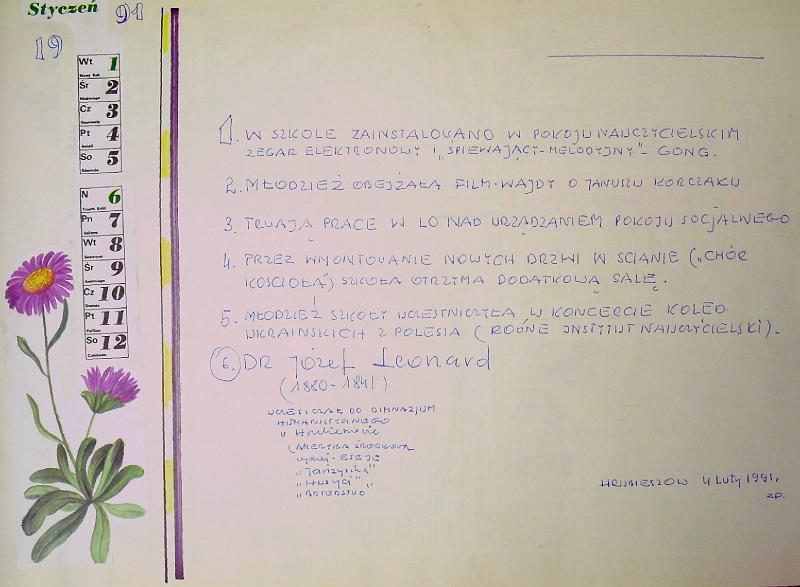 Styczeń 91
19
Wt 1
Nowy Rok
Śr 2
Cz 3
Pt 4
So 5
N 6
Trzech Króli
Pn 7
Wt 8
Śr 9
Cz 10
Pt 11
So 12
1. W SZKOLE ZAINSTALOWANO W POKOJU NAUCZYCIELSKIM
ZEGAR ELEKTRONOWY I „ŚPIEWAJĄCY-MELODYJNY"- GONG.
2. MŁODZIEŻ OBEJŻAŁA FILM-WAJDY O JANUSZU KORCZAKU
3. TRWAJĄ PRACE W LO NAD URZĄDZANIEM POKOJU SOCJALNEGO
4. PRZEZ WMONTOWANIE NOWYCH DRZWI W SCIANIE („CHÓR
KOSCIOŁA") SZKOŁA OTRZYMA DODATKOWĄ SALĘ.
5. MŁODZIEŻ SZKOŁY UCZESTNICZYŁA W KONCERCIE KOLĘD
UKRAINSKICH Z POLESIA (ROWNE INSTYTUT NAUCZYCIELSKI).
6. DR Józef Leonard
(1880-1941)
UCZĘSZCZAŁ DO GIMNAZJUM
HUMANISTYCZNEGO
w Hrubieszowie
(AMERYKA ŚRODKOWA
wydał - ESEJE
HRUBIESZOW 4 LUTY 1991.